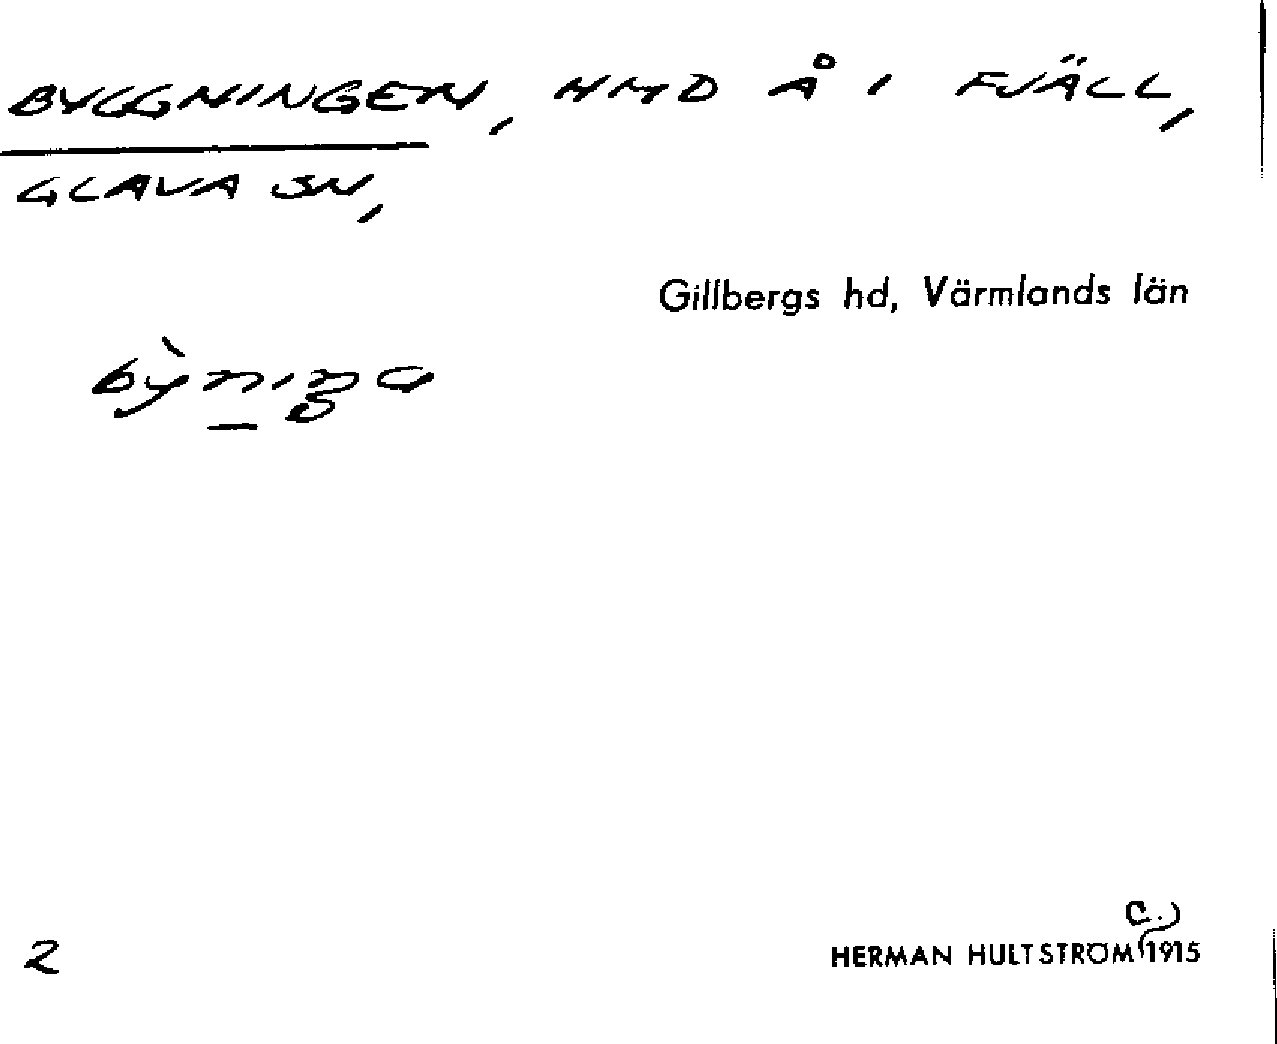 BYGGNINGEN, HMD Å I FJÄLL,
GLAVA SN,
Gillbergs hd, Värmlands län
2
C.)
HERMAN HULTSTRÖM 1915